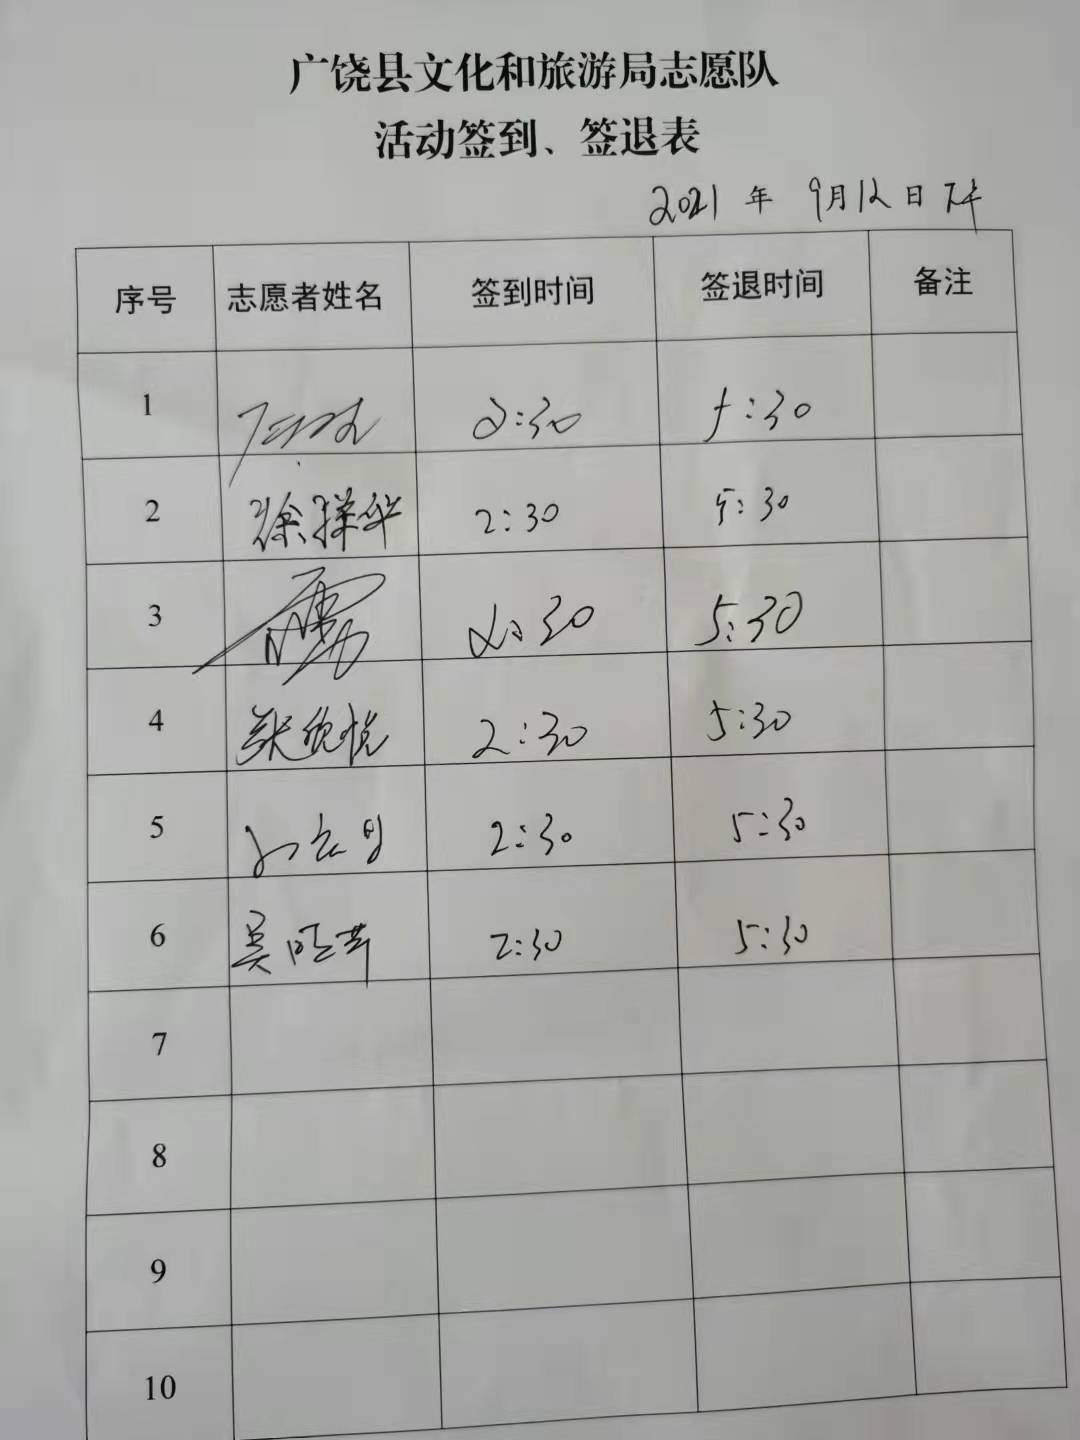 广饶县文化和旅游局志愿队
活动签到、签退表
2021 年 9月12日 下午
序号 志愿者姓名 签到时间 签退时间 备注
1 2:30 5:30
2 徐祥华 2:30 5:30
3 2:30 5:30
4 张欣悦 2:30 5:30
5 2:30 5:30
6 吴晓燕 2:30 5:30
7
8
9
10